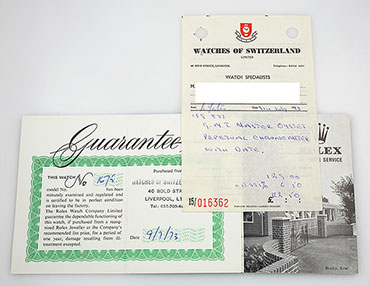 WATCHES OF SWITZERLAND
LIMITED
40 BOLD STREET, LIVERPOOL.
WATCH SPECIALISTS
M
G.M.T MASTER OYSTER
PERPETUAL CHRONOMETER
WITH DATE.
15/016362
£
Guarantee
THIS WATCH
No
model No.
has been
minutely examined and regulated and
is certified to be in perfect condition
on leaving the factory.
The Rolex Watch Company Limited
guarantee the dependable functioning of
this watch, if purchased from a recog-
nised Rolex Jeweller at the Company's
recommended list price, for a period of
one year, damage resulting from ill-
treatment excepted.
Purchased from
WATCHES OF SWITZERLAND
40 BOLD STR
LIVERPOOL, L
9/7/73
LEX
SERVICE
Bexley, Kent